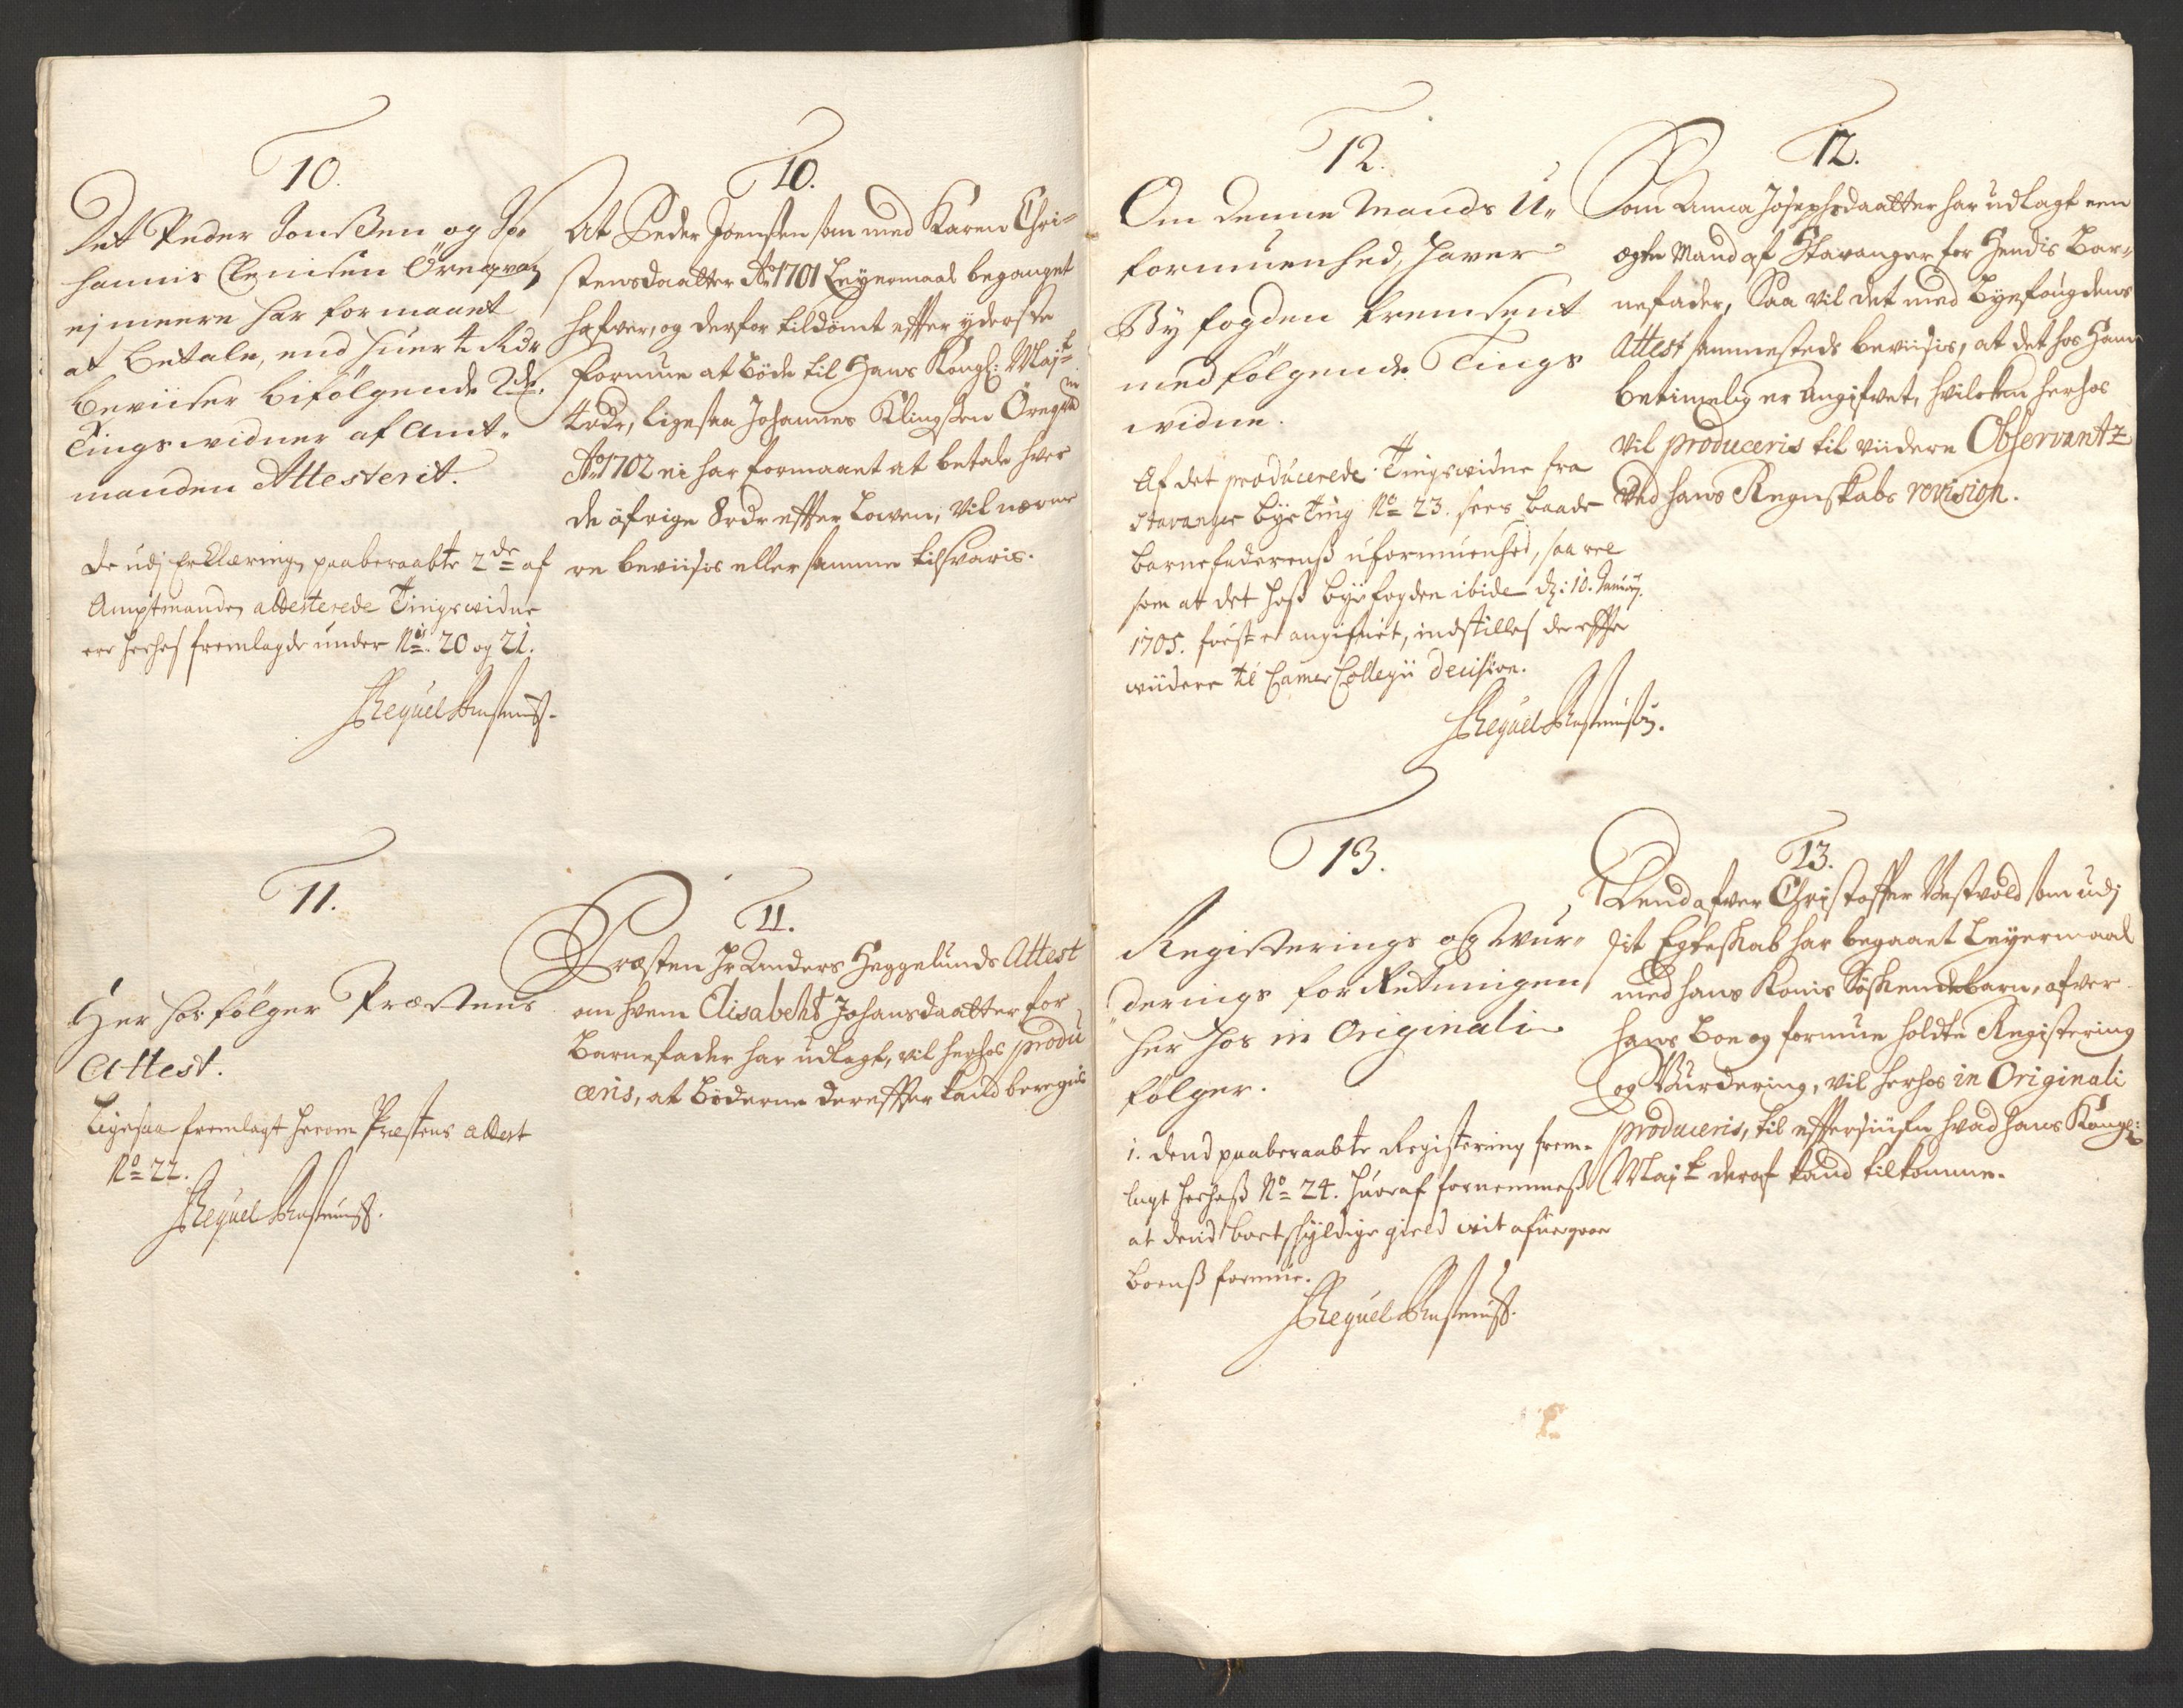 10.
Det Peder Jonsßen og Jo-
hannis Clemisen Öreqvam
ej meere har formaaet
at betale, end huer 4 Rdr
beviiser bifölgende 2de
Tings widner af Amt-
manden Attesterit.
de udj Erklæring paaberaabte 2de af
Amptmanden attesterede Tingswidne
ere herhos fremlagde under No. 20 og 21.
Rasmuss.
10.
At Peder Joensen som med Karen Chri-
stensdaatter Ao 1701 Leyermaal beganget
hafver, og derfor tildömt effter yderste
formue at böde til Hans Kongl: Majt
4rdr, ligesaa Johannes Klingsen Öreqvam
Ao 1702 ei har formaaet at betale hver
de öfrige 8rdr effter Lowen, vil nærme-
re beviises eller samme tilsvaris.
11.
Her hos fölger Præstens
Attest.
Ligesaa fremlagt herom Præstens attest
No 22.
Rasmuss.
11.
Præsten Hr Anders Heggelunds Attest
om hvem Elisabeht Johansdaatter for
Barnefader har udlagt, vil herhos produ
ceris, at Böderne dereffter kand beregnis
12.
Om denne Mands U-
formuenhed, haver
Byfogden fremsent
medfölgende Tings
widne.
Af det producerede Tingswidne fra
Stavanger bye Ting No 23. sees baade
barnefaderenß uformuenhed, saa vel
som at det hoß byefogden ibide d: 10. January
1705. först er angifuet, indstilles dereffter
widere til Camer Collegii decision.
Rasmussøn.
12.
Som Anna Josephsdaatter har udlagt een
ægte Mand af Stavanger for Hendis Bar-
nefader, Saa vil det med Byefougdens
Attest sammesteds beviisis, at det hos Ham
betimelig er Angifvet, hvilcken herhos
vil produceris til viidere Observantz
ved hans Regnskabs revision.
13.
Registerings og Wur-
derings forRetningen
her hos in Originali
fölger.
1. dend paaberaabte Registering frem-
lagt herhoß No 24. huoraf fornemmeß
at dend boet skyldige gield vit ofuergaar
boenß formue.
Rasmuss.
13.
Dend ofver Christoffer Vestvold som udj
sit Egteskab har begaaet Leyermaal
med hans Konis Söskendebarn, ofver
hans Boe og formue holdte Registering
og Vurdering, vil herhos in Originali
produceris, til effterSiufn hvad hans Kongl:
Majt deraf kand tilkomme.